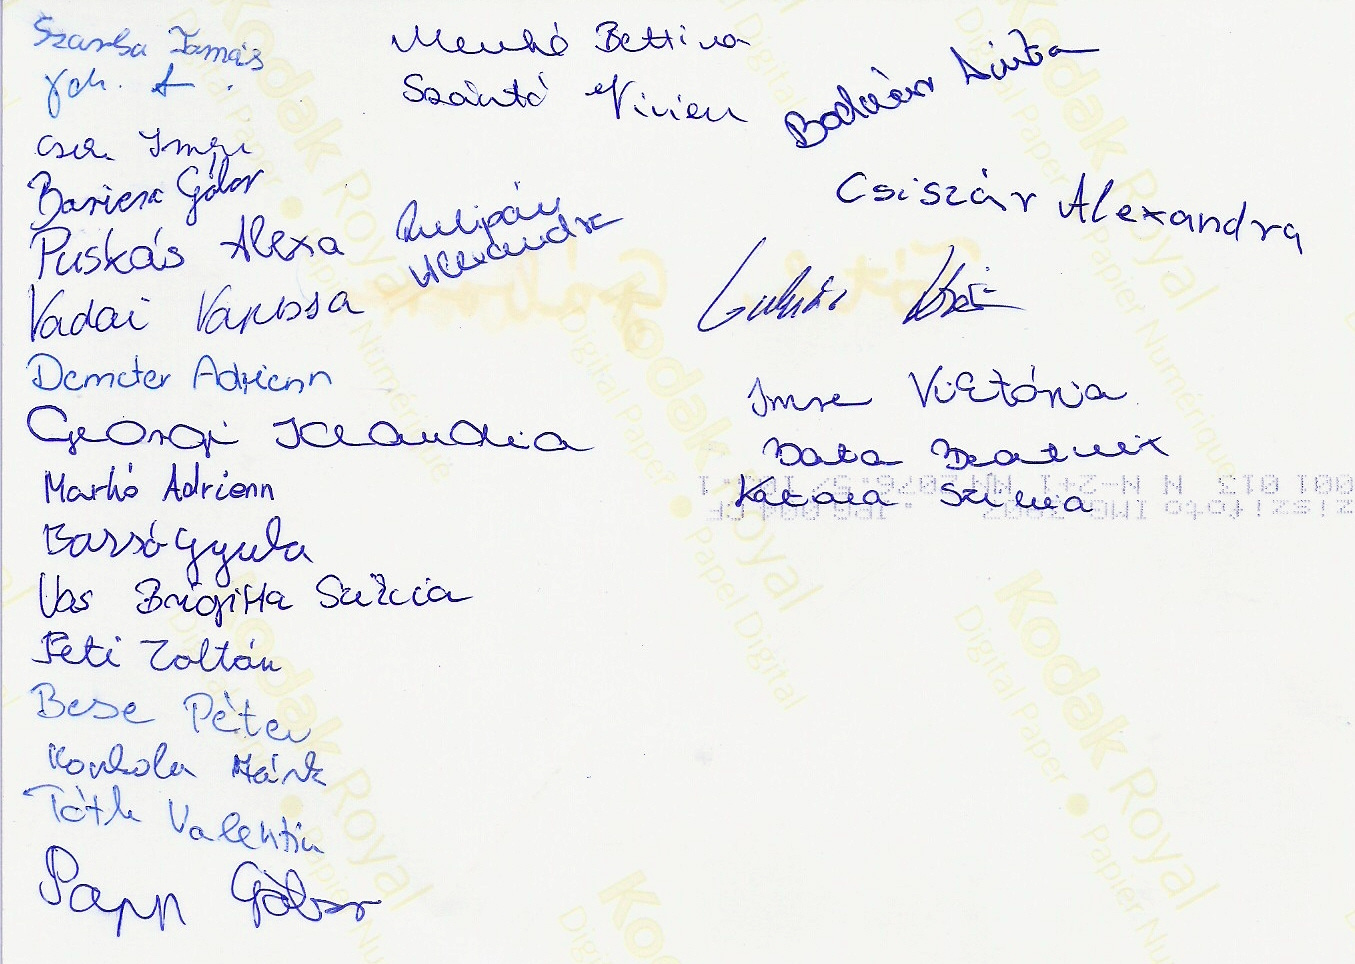 Szarka Tamás
Imre
Gábor
Puskás Alexa
Vadai Vanessa
Demeter Adrienn
Georgi Klaudia
Markó Adrienn
Barsó Gyula
Vas Brigitta Szilvia
Feti Zoltán
Bese Péter
Konkola Márk
Tóth Valentin
Papp Gábor
Menkó Bettina
Szántó Vivien
Tulipán
Alexandra
Bodnár Anita
Csiszár Alexandra
Imre Viktória
Data Beatrix
Katona Szilvia
Kodak Royal
Digital Paper
Papier Numérique
Papel Digital